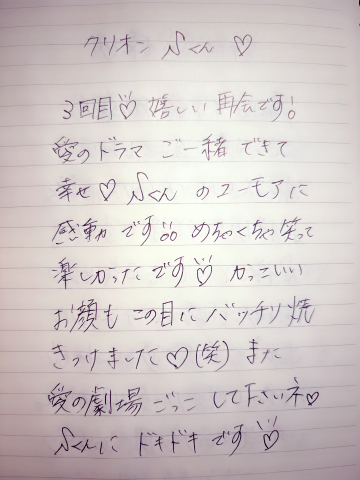 クリオン Sくん ♡
3回目♡ 嬉しい再会です!
愛のドラマ ご一緒 できて
幸せ♡ Sくん のユーモアに
感動 です!! めちゃくちゃ笑って
楽しかったです♡ かっこいい
お顔も この目に バッチリ焼
きつけました♡(笑) また
愛の劇場 ごっこ して下さいネ♡
Sくんに ドキドキ です♡